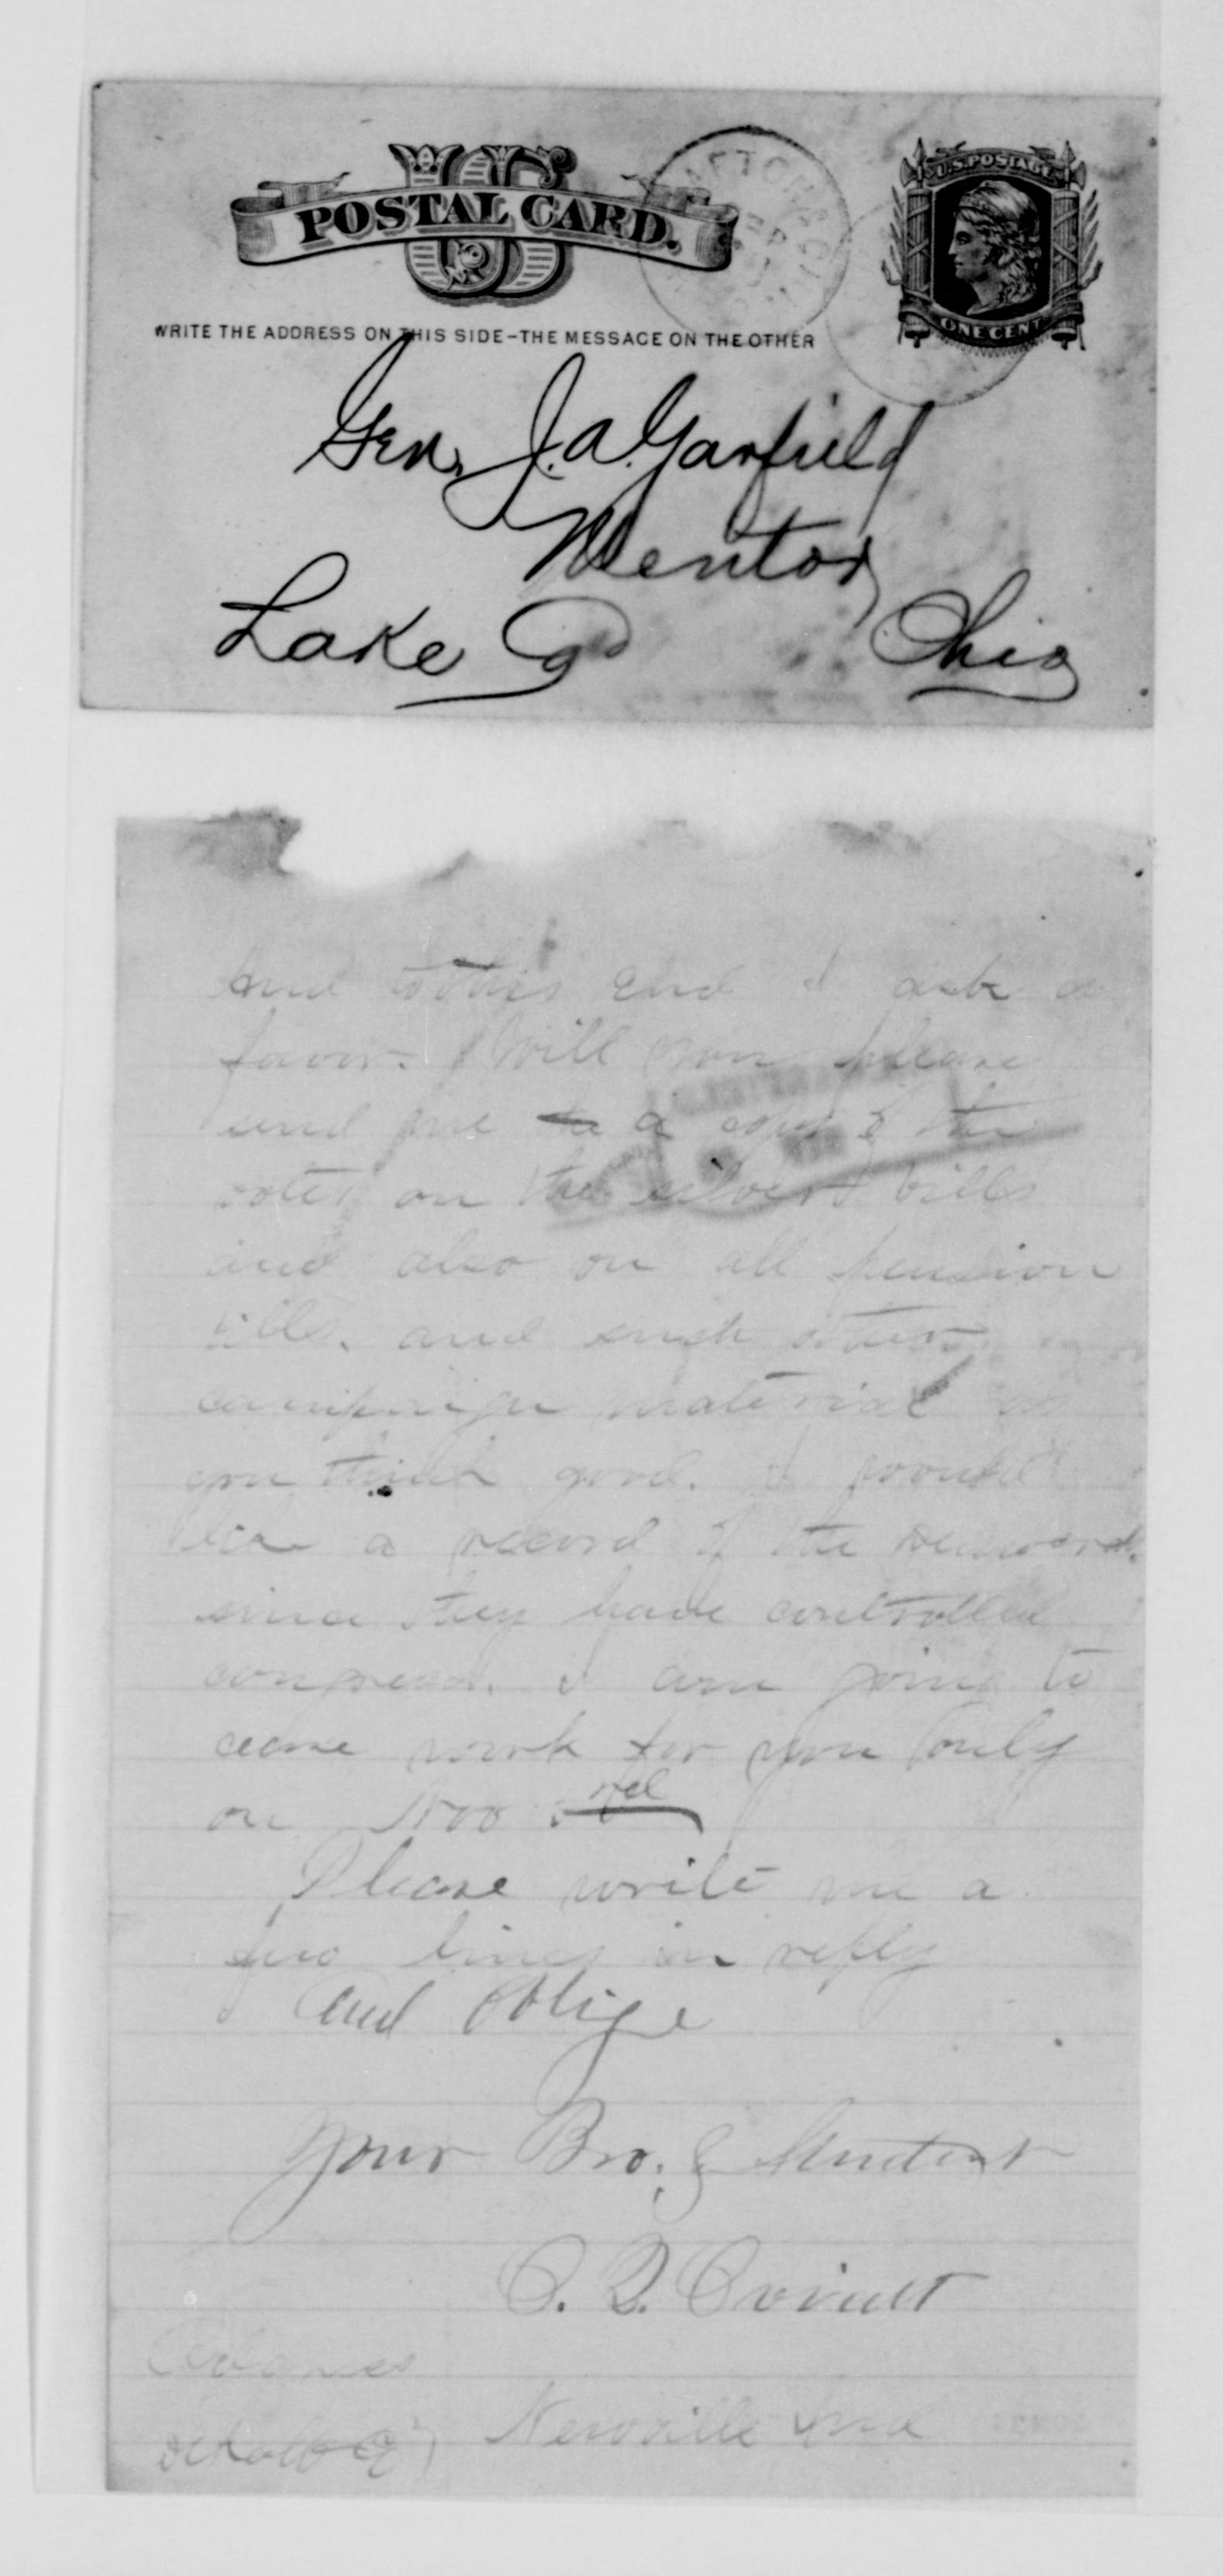 US
POSTAL CARD.
U.S. POSTAGE
ONE CENT
WRITE THE ADDRESS ON THIS SIDE–THE MESSAGE ON THE OTHER
Gen. J. A. Garfield
Mentor,
Lake Co Ohio
And to this end I ask a
favor. Will you please
send me a copy of the
votes on the silver bills
and also on all pension
bills. and such other
campaign material as
you think good. I would
like a record of the
since they have controlled
congress. I am going to
work for you only
on
Please write me a
few lines in reply
and Oblige
Your Bro. & Student
Address
Dekalb Co Newville Ind